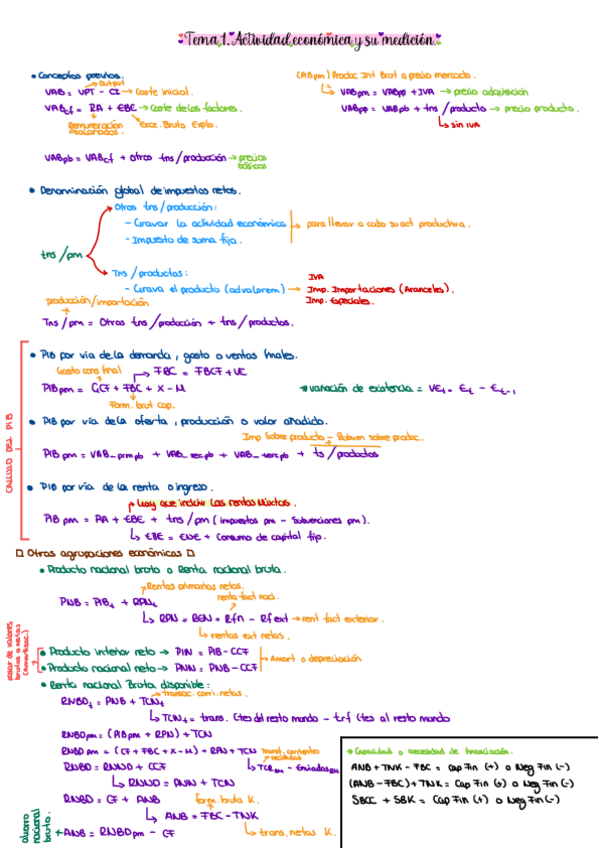 Tema 1. Actividad económica y su medición.
• Conceptos previos.
Output
VAB = VPT - CI → Coste inicial.
VABcf = RA + EBE → Coste de los factores.
Remuneración asalariados.
Exce. Bruto Explo.
VABpb = VABcf + otros tns/producción → precios básicos
(ABpm) Produc Int Brut a precio mercado.
VABpm = VABpp + IVA → precio adquisición
VABpp = VABpb + tns/producto → precio producto.
↳ sin IVA
• Denominación global de impuestos netos.
tns/pm
Otros tns/producción:
- Gravar la actividad económica
- Impuesto de suma fija.
para llevar a cabo su act productiva.
Tns/productos:
- Grava el producto (advalorem) →
IVA
Imp. Importaciones (Aranceles).
Imp. Especiales.
producción/importación
Tns/pm = Otros tns/producción + tns/productos.
CALCULO DEL PIB
• PIB por via de la demanda, gasto o ventas finales.
Gasto cons final
FBC = FBCF + VE
PIBpm = GCF + FBC + X - M
Form. brut cap.
* variación de existencia = VEt = Et - Et-1
• PIB por vía de la oferta, producción o valor añadido.
Imp Sobre producto - Subven sobre produc.
PIBpm = VAB_prim pb + VAB_sec pb + VAB_terc pb + ts/productos
• PIB por vía de la renta o ingreso.
Hay que incluir las rentas Mixtas.
PIBpm = RA + EBE + tns/pm (Impuestos pm - Subvenciones pm).
↳ EBE = ENE + Consumo de capital fijo.
Otras agrupaciones económicas
• Producto nacional bruto o Renta nacional bruta.
Rentas primarias netas.
renta fact naci.
PNB = PIBt + RPNt
↳ RPN = REN = Rfn - Rfext → rent fact exterior.
↳ rentas ext netas.
pasar de valores brutos a netos (Amortizac.)
• Producto interior neto → PIN = PIB - CCF
• Producto nacional neto → PNN = PNB - CCF
Amort o depreciación
• Renta nacional Bruta disponible:
transac. corri. netas.
RNBDt = PNB + TCNt
↳ TCNt = trans. Ctes del resto mundo - trf Ctes al resto mundo
RNBDpm = (PIBpm + RPN) + TCN
RNBDpm = (CF + FBC + X - M) + RPN + TCN
Transf. corrientes recibidas
RNBD = RNND + CCF
↳ RNND = PNN + TCN
RNBD = CF + ANB
form. bruta K.
↳ ANB = FBC - TNK
ahorro nacional bruto.
ANB = RNBDpm - CF
↳ trans. netas K.
* Capacidad o necesidad de financiación.
ANB + TNK - FBC = Cap Fin (+) o Neg Fin (-)
(ANB - FBC) + TNK = Cap Fin (+) o Neg Fin (-)
SBCC + SBK = Cap Fin (+) o Neg Fin (-)